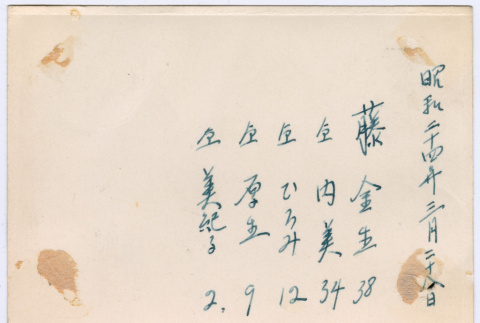 昭和二十四年三月二十八日
藤金生 38
仝 内美 34
仝 ひろみ 12
仝 厚生 9
仝 美紀子 2.